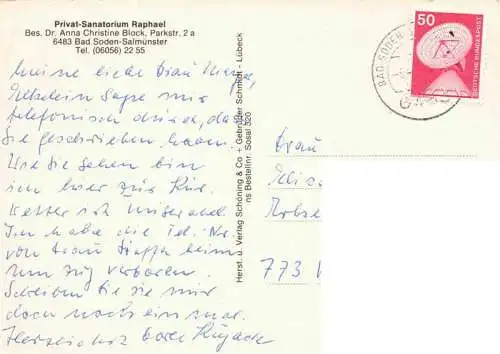 Privat-Sanatorium Raphael
Bes. Dr. Anna Christine Block, Parkstr. 2 a
6483 Bad Soden-Salmünster
Tel. (06056) 22 55
Meine liebe Frau
sagte mir
telefonisch dass
Sie geschrieben haben.
Wie Sie sehen bin
ich hier zur Kur.
Wetter ist miserabel
Ich habe die Tel. Nr.
von Frau beim
Umzug verloren.
Schreiben Sie sie mir
doch noch einmal.
Herzlichst
Herst. u. Verlag Schöning & Co + Gebrüder Schmidt - Lübeck
ns Bestellnr. Sosal 520
50
DEUTSCHE BUNDESPOST
BAD SODEN
Frau
773